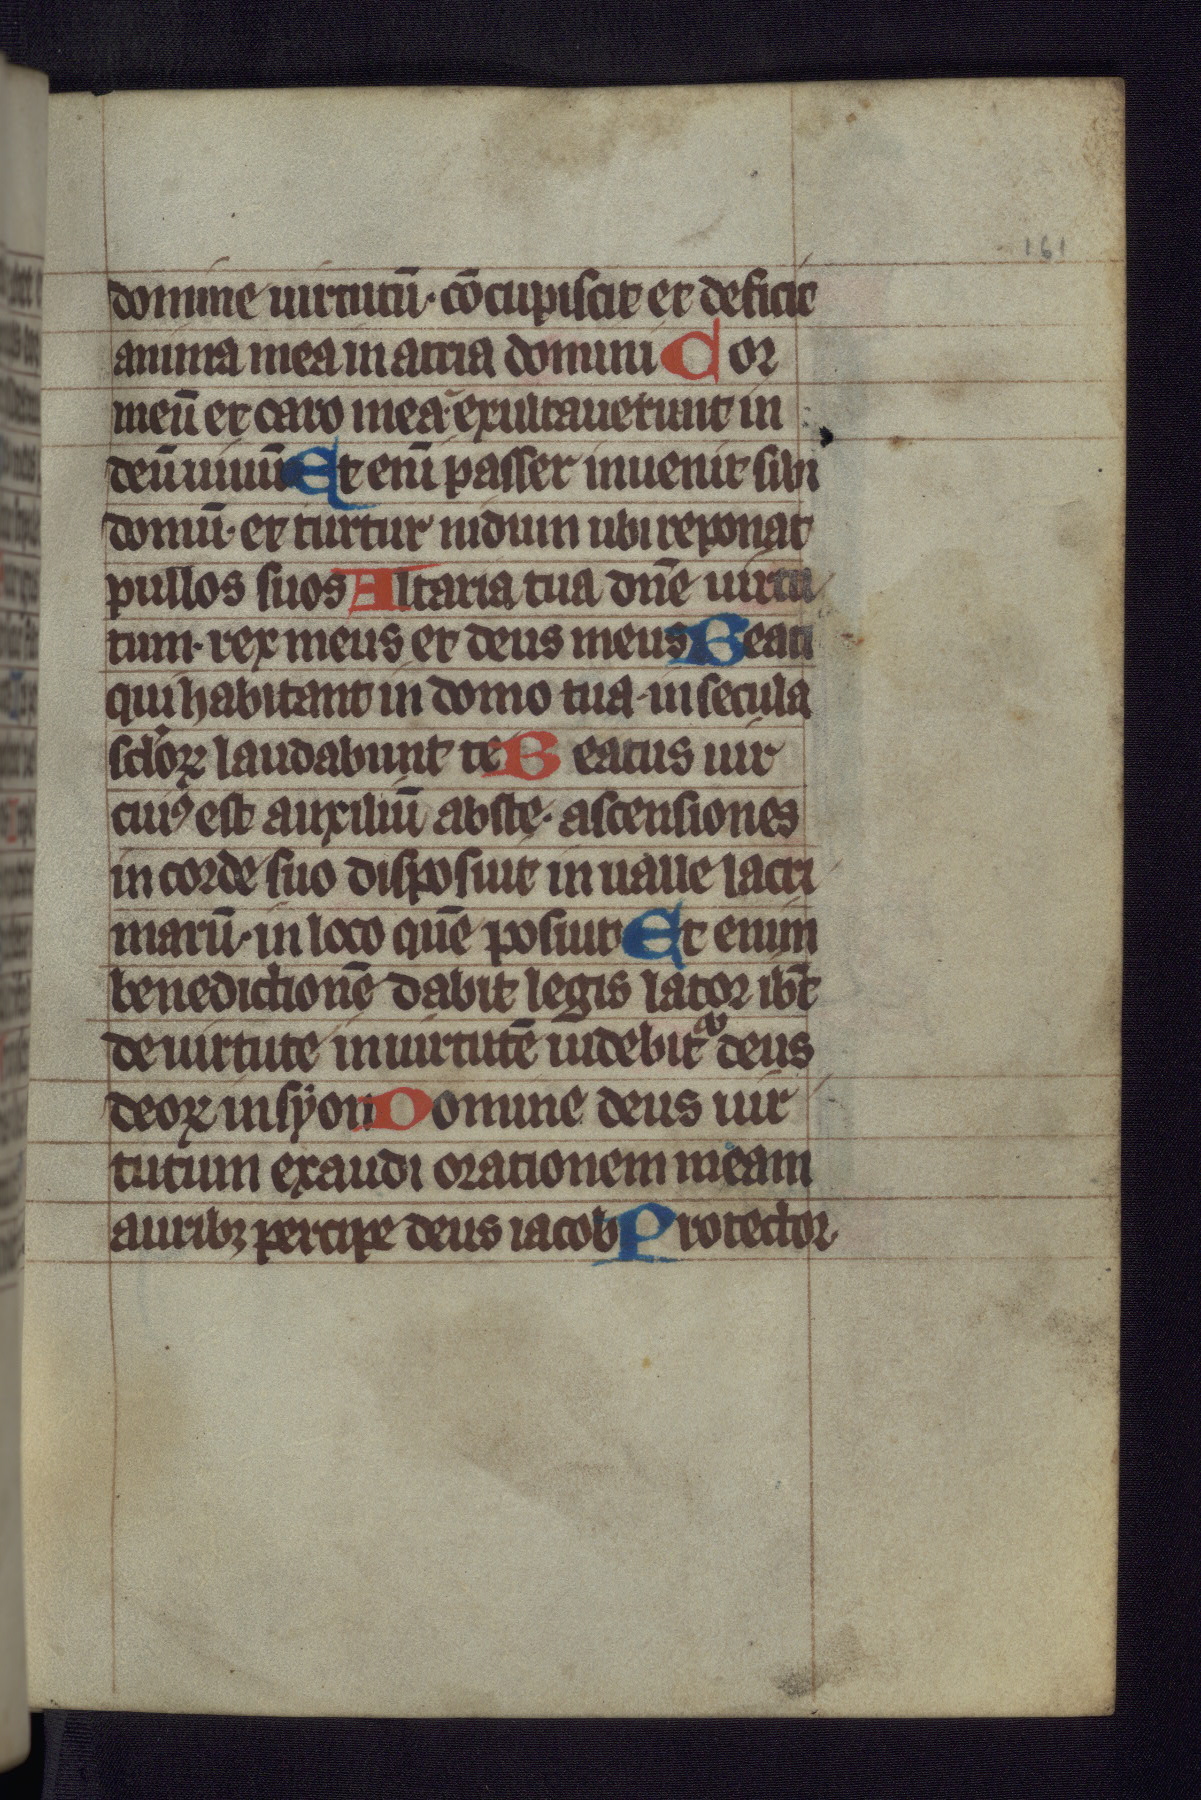 161
domine uirtutū· cōcupiscit et deficit
anima mea in atria domini Cor
meū et caro mea· exultauerunt in
deū uiuū Et enī passer inuenit sibi
domū· et turtur nidum ubi reponat
pullos suos Altaria tua dn̄e uirtu
tum· rex meus et deus meus Beati
qui habitant in domo tua· in secula
sclōꝝ laudabunt te Beatus uir
cuiꝰ est auxiliū abste· ascensiones
in corde suo disposuit in ualle lacri
marū· in loco quē posiut Et enim
benedictionē dabit legis lator ibūt
de uirtute in uirtutē uidebitᷣ deus
deoꝝ in syon Domine deus uir
tutum exaudi orationem meam
auribꝫ percipe deus iacob Protector